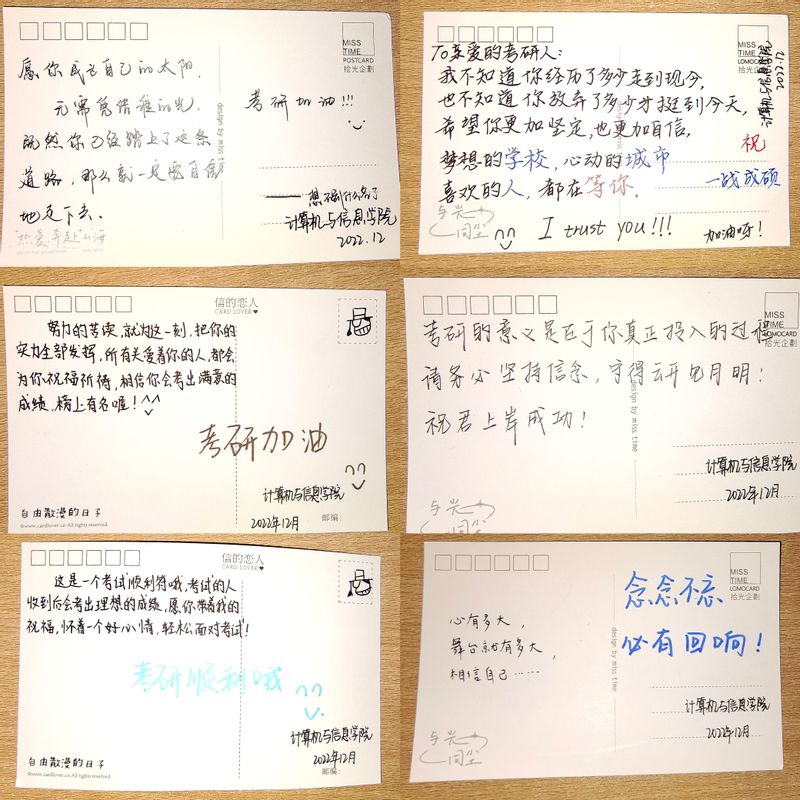 愿你成为自己的太阳，
无需凭借谁的光，
既然你已经踏上了这条
道路，那么就一定要自信
地走下去。
热爱奔赴山海
design by miss
MISS
TIME
POSTCARD
拾光企劃
考研加油!!!
—— 想不到什么名了
计算机与信息学院
2022.12
To亲爱的考研人：
我不知道你经历了多少走到现今，
也不知道你放弃了多少才挺到今天，
希望你更加坚定，也更加自信，
梦想的学校，心动的城市
喜欢的人，都在等你。
与光
同尘
I trust you!!!
MISS
TIME
LOMOCARD
拾光企劃
计算机与信息学院
2022.12
祝
一战成硕
加油呀！
信的恋人
CARD LOVER
努力的苦读，就为这一刻，把你的
实力全部发挥，所有关爱着你的人，都会
为你祝福祈祷，相信你会考出满意的
成绩，榜上有名喔！^^
考研加油
计算机与信息学院
2022年12月
邮编:
自由散漫的日子
©www.cardlover.cn All rights reserved
考研的意义是在于你真正投入的过程
请务必坚持信念，守得云开见月明！
祝君上岸成功！
TIME
LOMOCARD
拾光企劃
design by miss time
计算机与信息学院
2022年12月
与光
同尘
信的恋人
CARD LOVER
这是一个考试顺利符哦，考试的人
收到后会考出理想的成绩，愿你带着我的
祝福，怀着一个好心情，轻松面对考试！
考研顺利哦
计算机与信息学院
2022年12月
邮编:
自由散漫的日子
©www.cardlover.cn All rights reserved
心有多大，
舞台就有多大，
相信自己……
design by miss time
MISS
TIME
LOMOCARD
拾光企劃
念念不忘
必有回响！
计算机与信息学院
2022年12月
与光
同尘